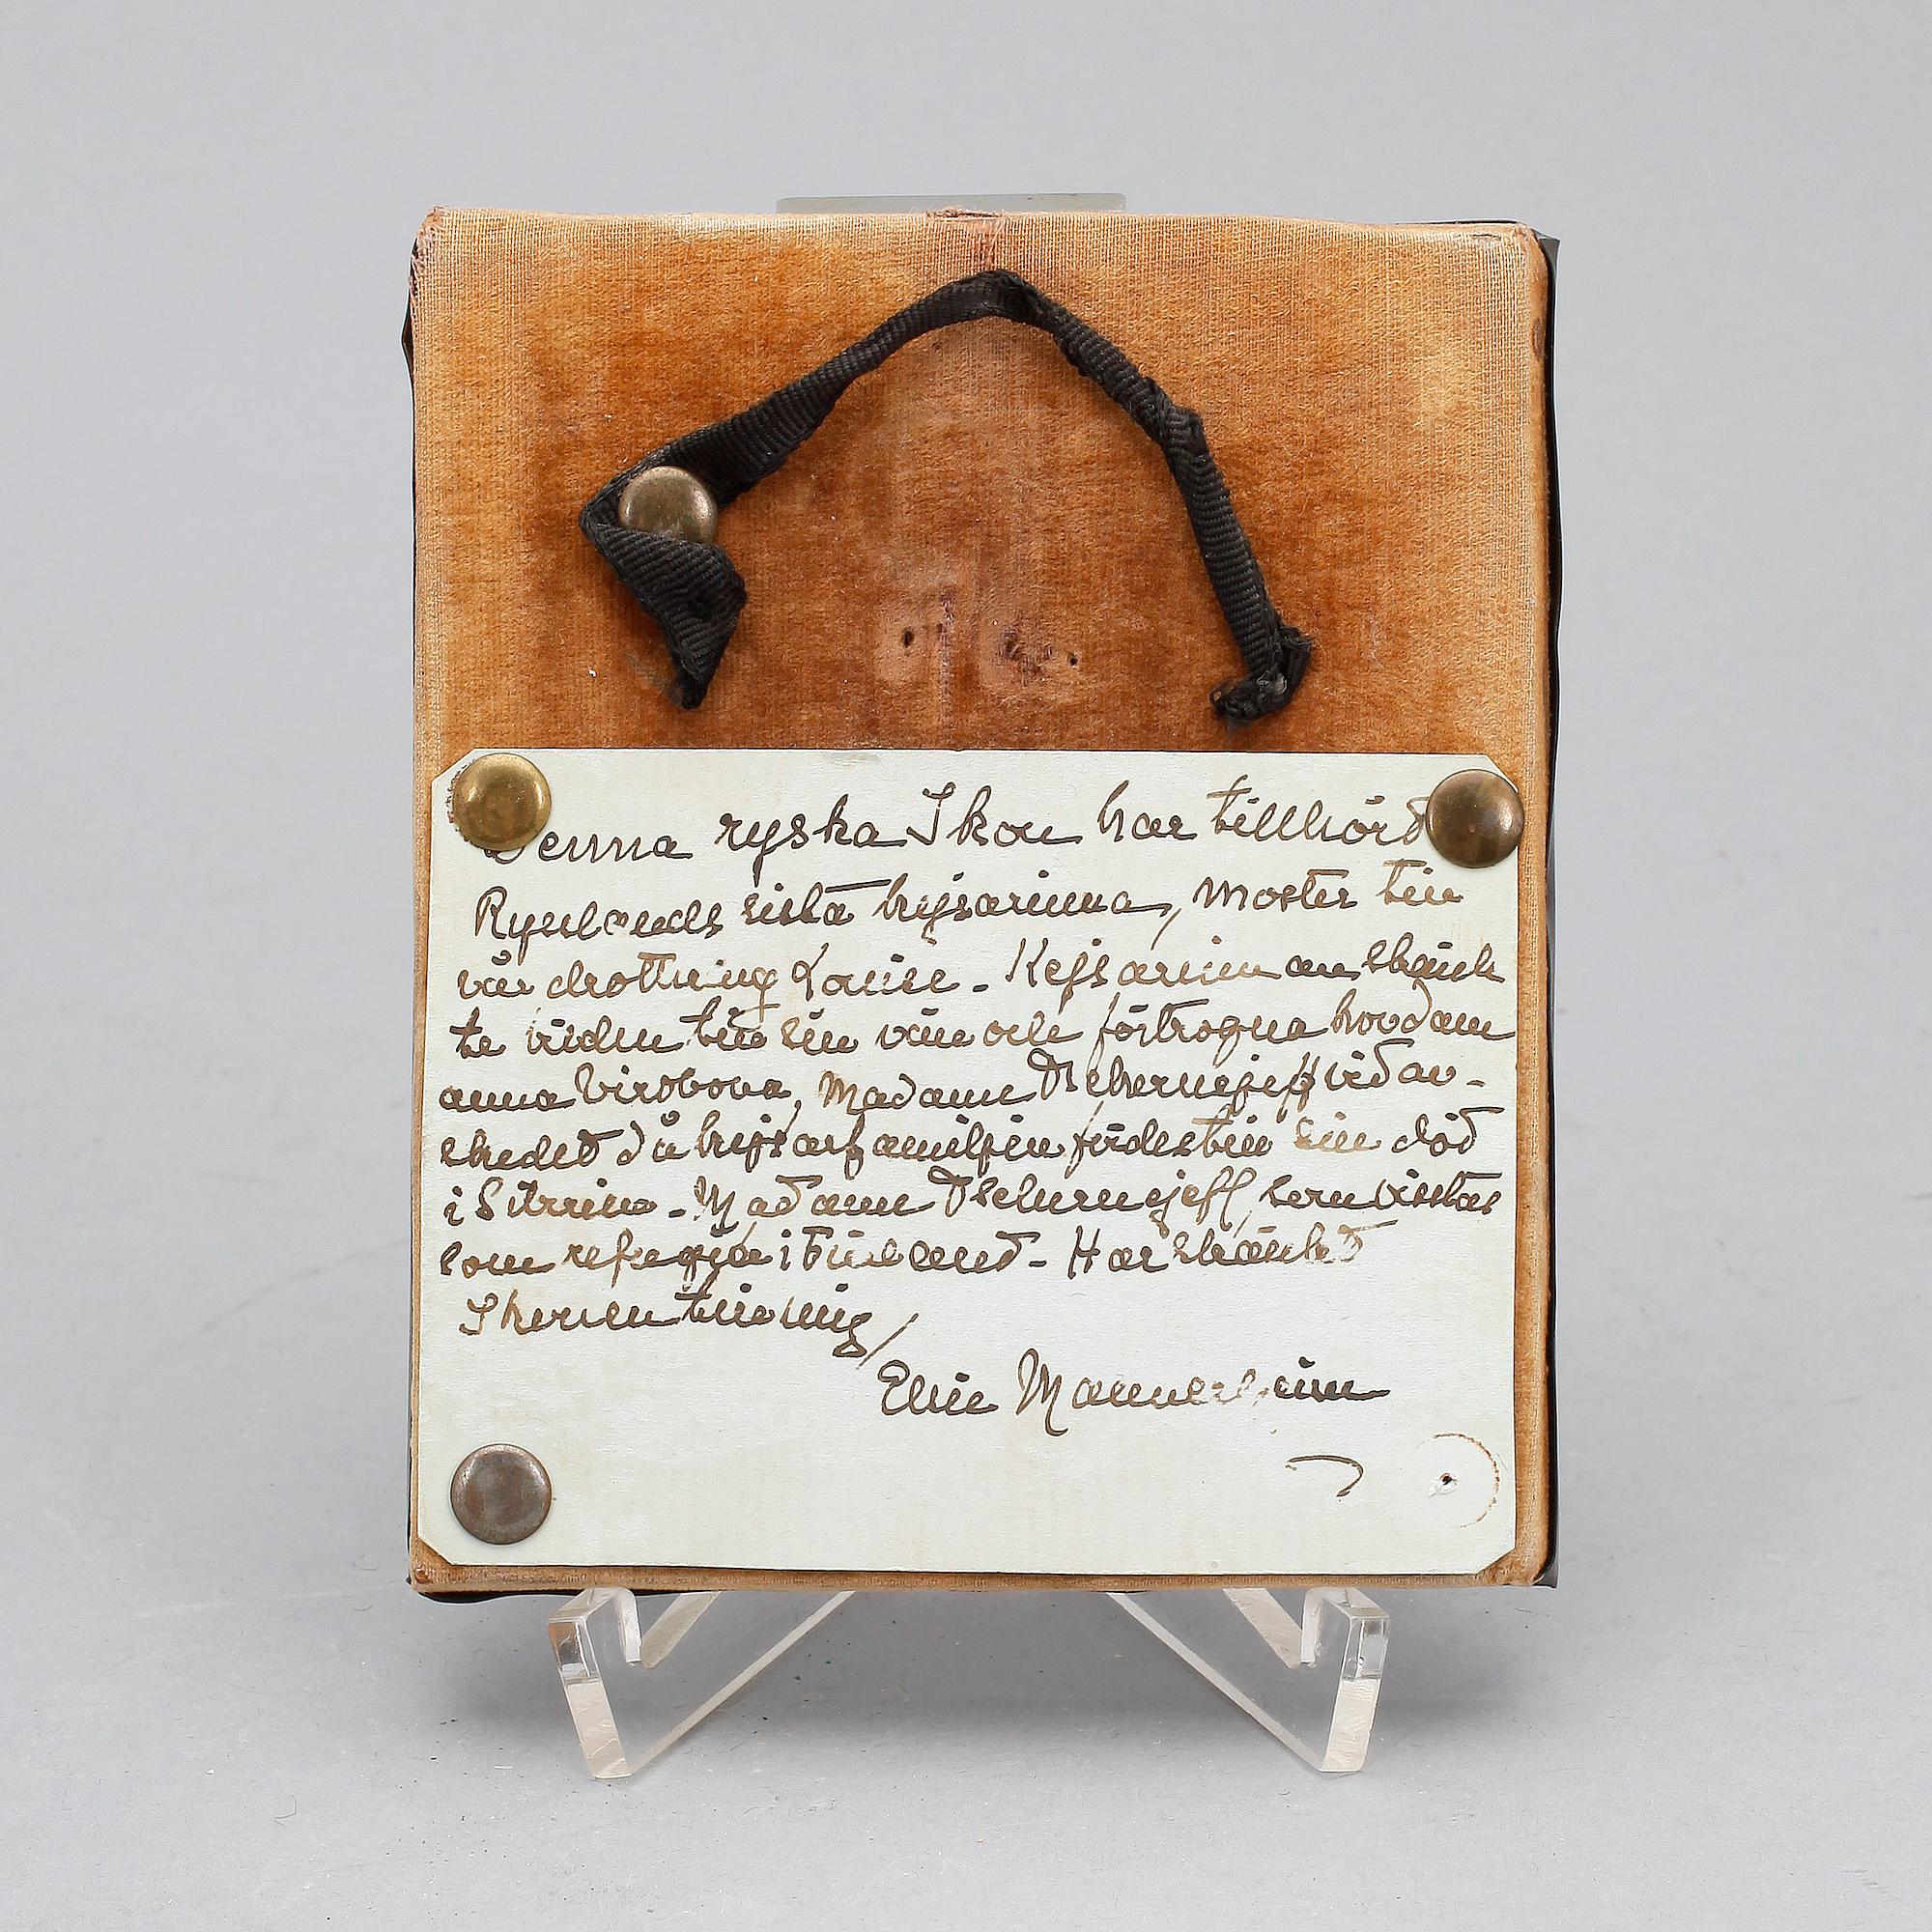 Denna ryska Ikon har tillhört
Rysslands sista kejsarinna, Moster till
vår drottning Louise - Kejsarinnan skänk
te till sin vän och förtrogna hovdam
anna Virobova, Madame Tschernejeff vid av-
skedet då kejsarfamiljen fördes till sin död
i Sibirien - Madame Tschernejeff, som vistas
som refugié i Finland - Har skänkt
Ikonen till mig/
Elsie Mannerheim